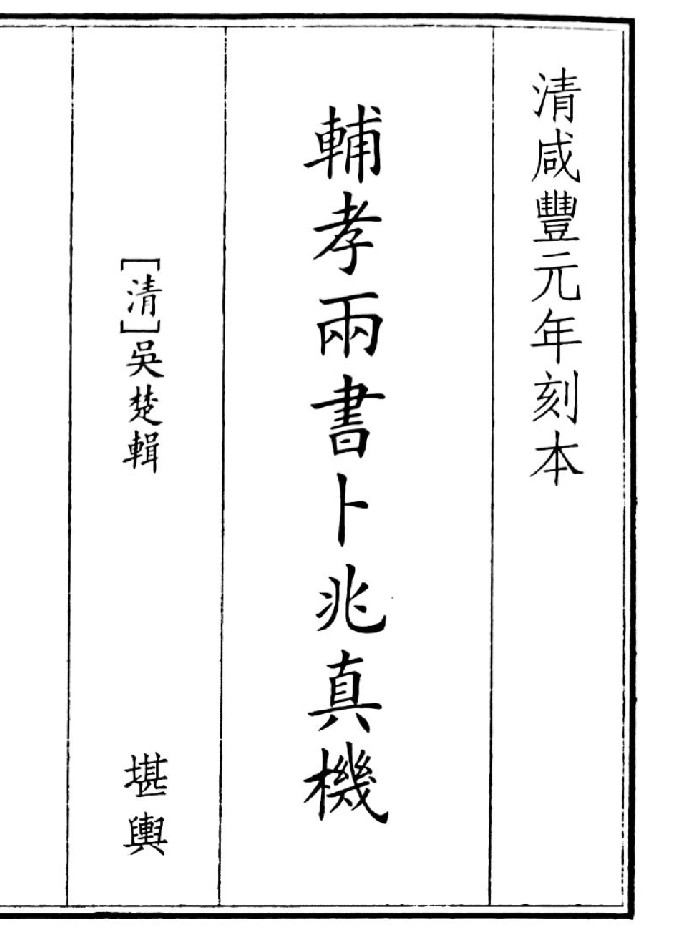 清咸豐元年刻本
輔孝兩書卜兆真機
[清]吳楚輯
堪輿